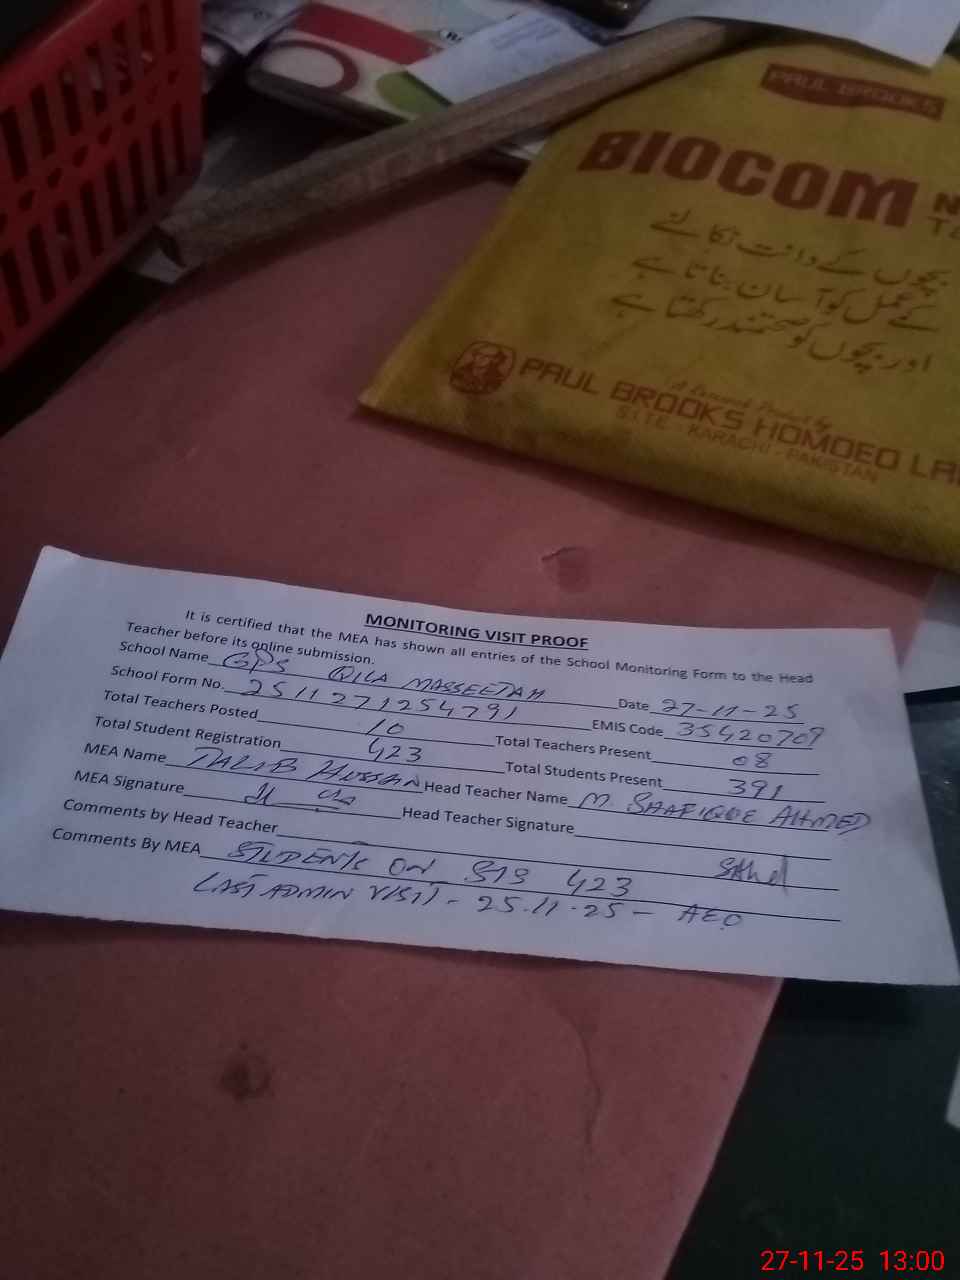 PAUL BROOKS
BIOCOM
بچوں کے دانت نکالنے
کے عمل کو آسان بناتا ہے
اور بچوں کو صحتمند رکھتا ہے
PAUL BROOKS HOMOEO
S.I.T.E - KARACHI - PAKISTAN
MONITORING VISIT PROOF
It is certified that the MEA has shown all entries of the School Monitoring Form to the Head
Teacher before its online submission.
School Name GPS QILA MASSEETAH Date 27-11-25
School Form No. 2511271254791 EMIS Code 35420709
Total Teachers Posted 10 Total Teachers Present 08
Total Student Registration 423 Total Students Present 391
MEA Name TALIB HUSSAN Head Teacher Name M. SHAFIQUE AHMED
MEA Signature Head Teacher Signature
Comments by Head Teacher
Comments By MEA STUDENTS ON SIS 423
LAST ADMIN VISIT - 25.11.25 - AEO
27-11-25 13:00